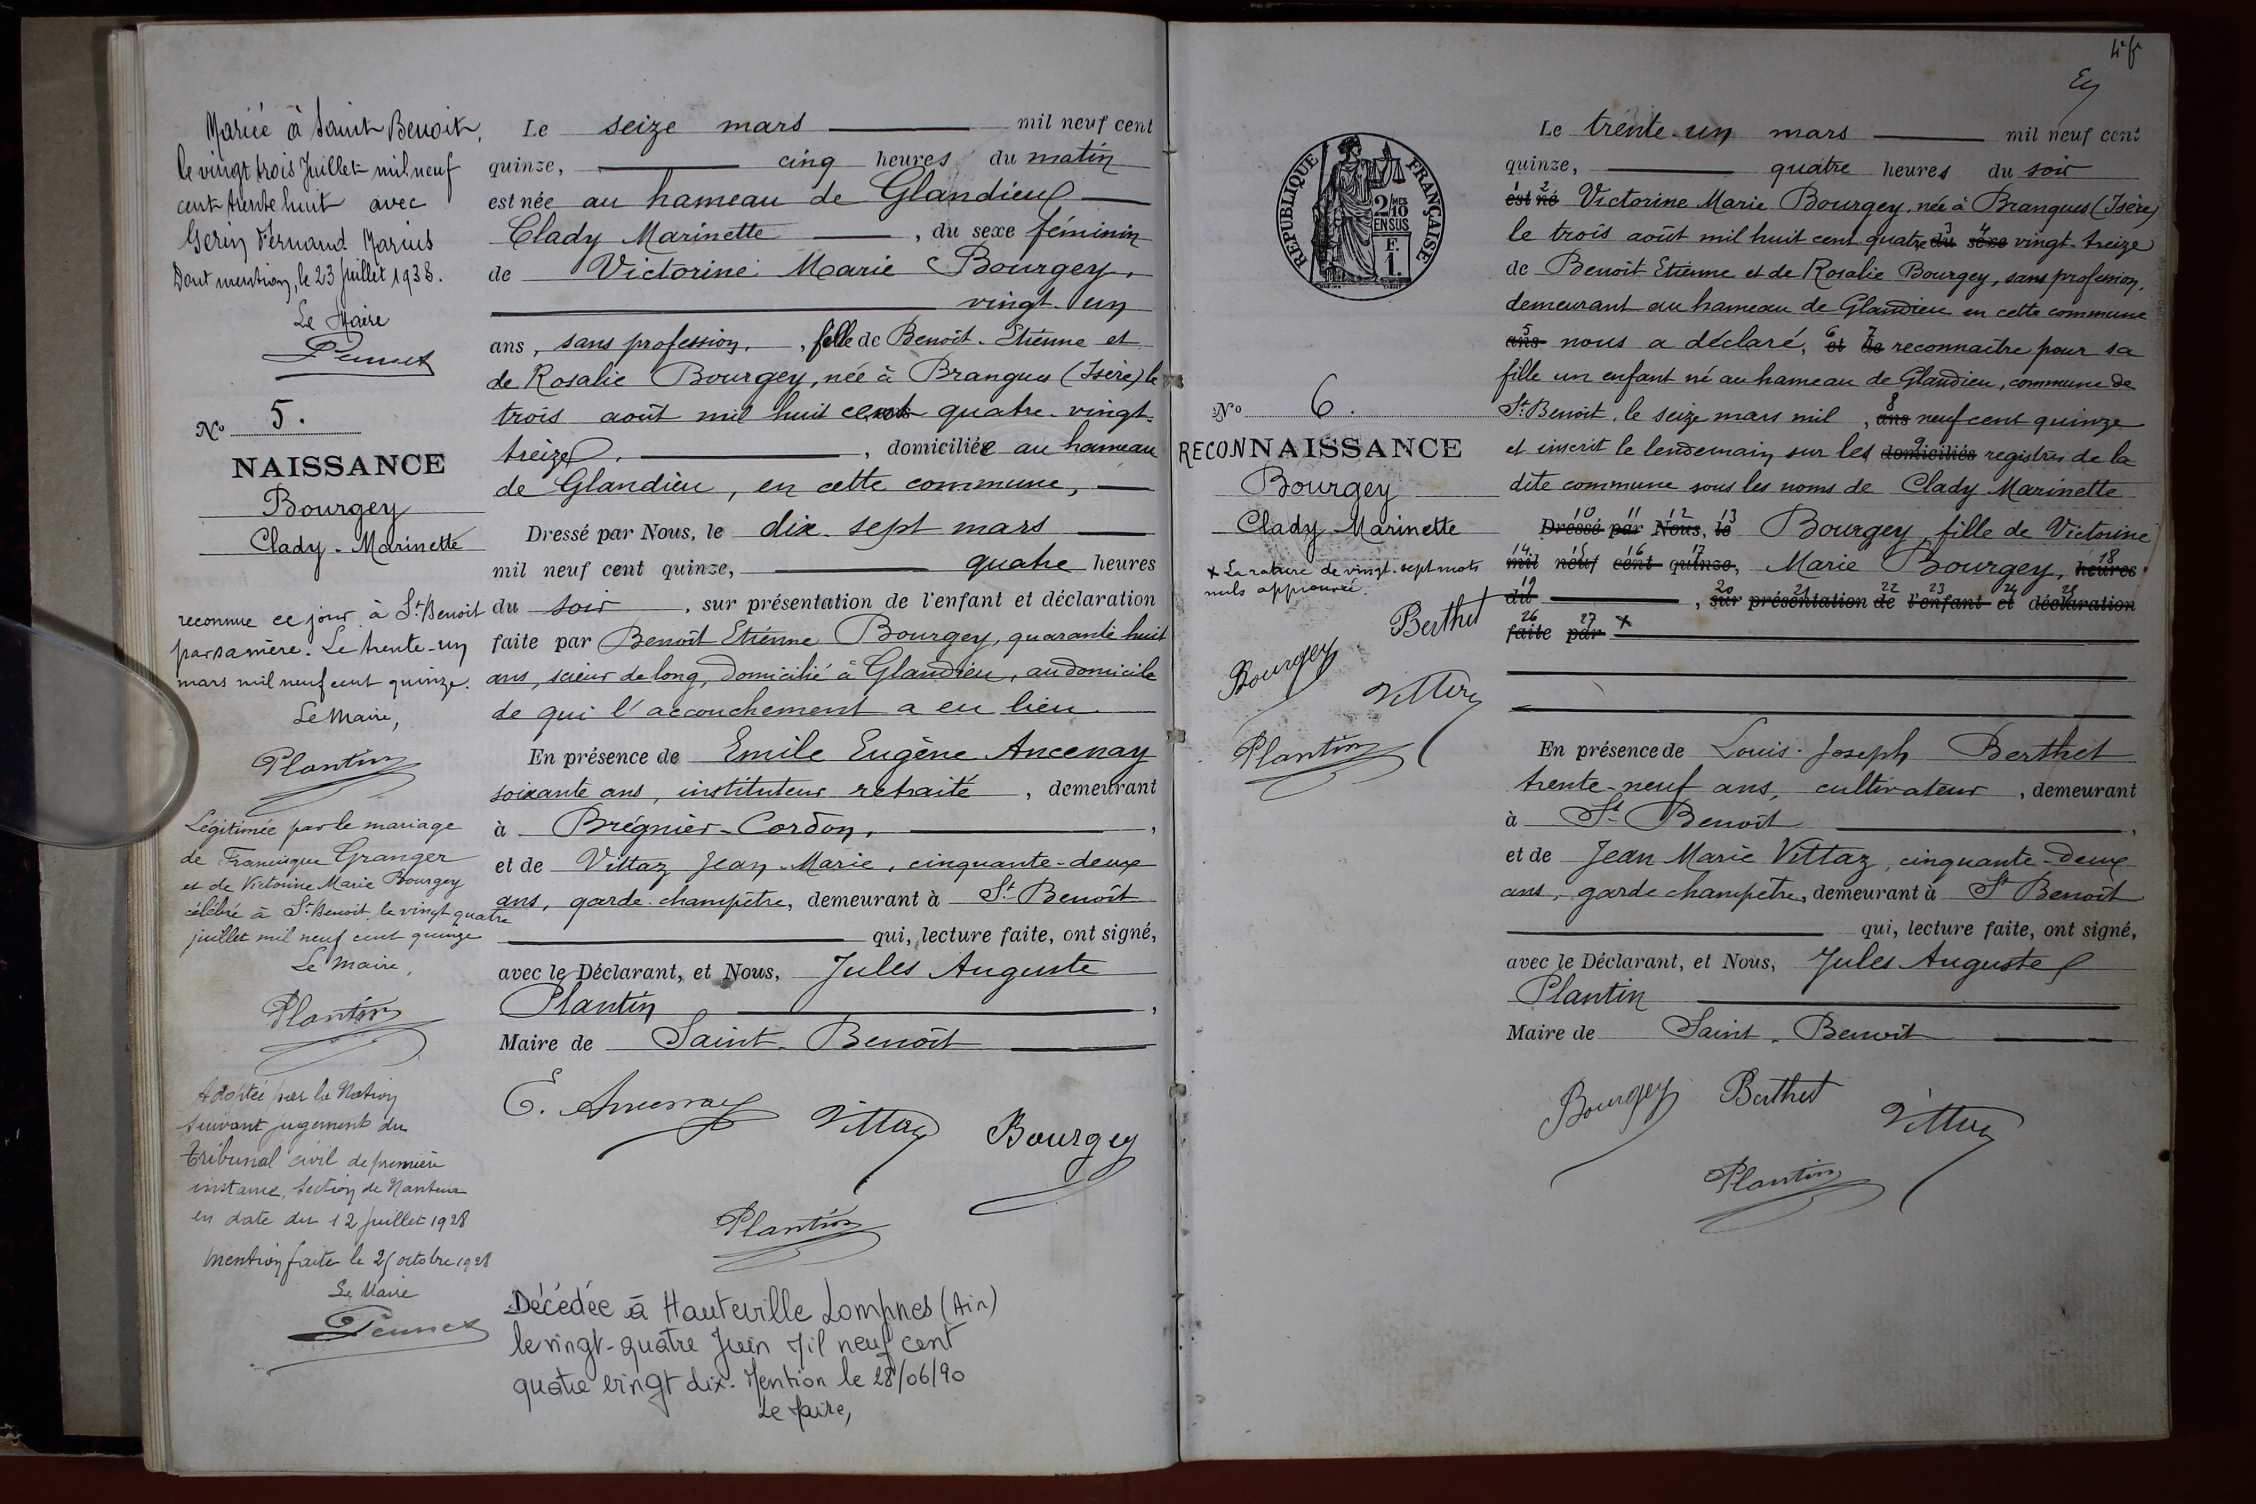 Mariée à Saint Benoit,
le vingt trois Juillet mil neuf
cent trente huit avec
Gerin Fernand Marius
Dont mention, le 23 Juillet 1938.
Le Maire
No 5.
NAISSANCE
Bourgey
Clady-Marinette
reconnue ce jour à St Benoit
par sa mère. Le trente-un
mars mil neuf cent quinze.
Le Maire,
Plantin
Légitimée par le mariage
de Francisque Granger
et de Victorine Marie Bourgey
célébré à St Benoit le vingt quatre
juillet mil neuf cent quinze
Le Maire,
Plantin
Adoptée par la Nation
suivant jugement du
Tribunal civil de première
instance, section de Nantua
en date du 12 Juillet 1928
Mention faite le 25 octobre 1928
Le Maire
Le seize mars mil neuf cent
quinze, cinq heures du matin
est née au hameau de Glandieu
Clady Marinette , du sexe féminin
de Victorine Marie Bourgey,
vingt-un
ans, sans profession, , fille de Benoît-Etienne et
de Rosalie Bourgey, née à Brangues (Isère) le
trois août mil huit cent quatre-vingt-
treize, , domiciliée au hameau
de Glandieu, en cette commune,
Dressé par Nous, le dix-sept mars
mil neuf cent quinze, quatre heures
du soir , sur présentation de l'enfant et déclaration
faite par Benoît Etienne Bourgey, quarante huit
ans, scieur de long, domicilié à Glandieu, au domicile
de qui l'accouchement a eu lieu
En présence de Emile Eugène Ancenay
soixante ans, instituteur retraité , demeurant
à Brégnier-Cordon, ,
et de Vittaz Jean-Marie, cinquante-deux
ans, garde-champêtre, demeurant à St Benoît
qui, lecture faite, ont signé,
avec le Déclarant, et Nous, Jules Auguste
Plantin ,
Maire de Saint-Benoît
E. Ancenay Vittaz Bourgey
Plantin
Décédée à Hauteville Lompnes (Ain)
le vingt-quatre Juin Mil neuf cent
quatre vingt dix. Mention le 28/06/90
Le Maire,
RÉPUBLIQUE FRANÇAISE
2/10 MES
EN SUS
1 F.
No 6.
RECONNAISSANCE
Bourgey
Clady-Marinette
x La rature de vingt-sept mots
nuls approuvée.
Berthet
Bourgey
Vittaz
Plantin
Le trente-un mars mil neuf cent
quinze, quatre heures du soir
1 2
est né Victorine Marie Bourgey, née à Brangues (Isère)
3 4
le trois août mil huit cent quatre du sexe vingt-treize
de Benoît Etienne et de Rosalie Bourgey, sans profession,
demeurant au hameau de Glandieu en cette commune
5 6 7
ans nous a déclaré, et de reconnaître pour sa
fille un enfant né au hameau de Glandieu, commune de
8
St Benoit, le seize mars mil , ans neuf cent quinze
9
et inscrit le lendemain sur les domiciliés registres de la
dite commune sous les noms de Clady Marinette
10 11 12 13
Dressé par Nous, le Bourgey, fille de Victorine
14 15 16 17 18
mil neuf cent quinze, Marie Bourgey, heures
19 20 21 22 23 24 25
du , sur présentation de l'enfant et déclaration
26 27
faite par x
En présence de Louis-Joseph Berthet
trente-neuf ans, cultivateur , demeurant
à St Benoît ,
et de Jean Marie Vittaz, cinquante-deux
ans, garde champêtre, demeurant à St Benoît
qui, lecture faite, ont signé,
avec le Déclarant, et Nous, Jules Auguste
Plantin
Maire de Saint-Benoît
Bourgey Berthet Vittaz
Plantin